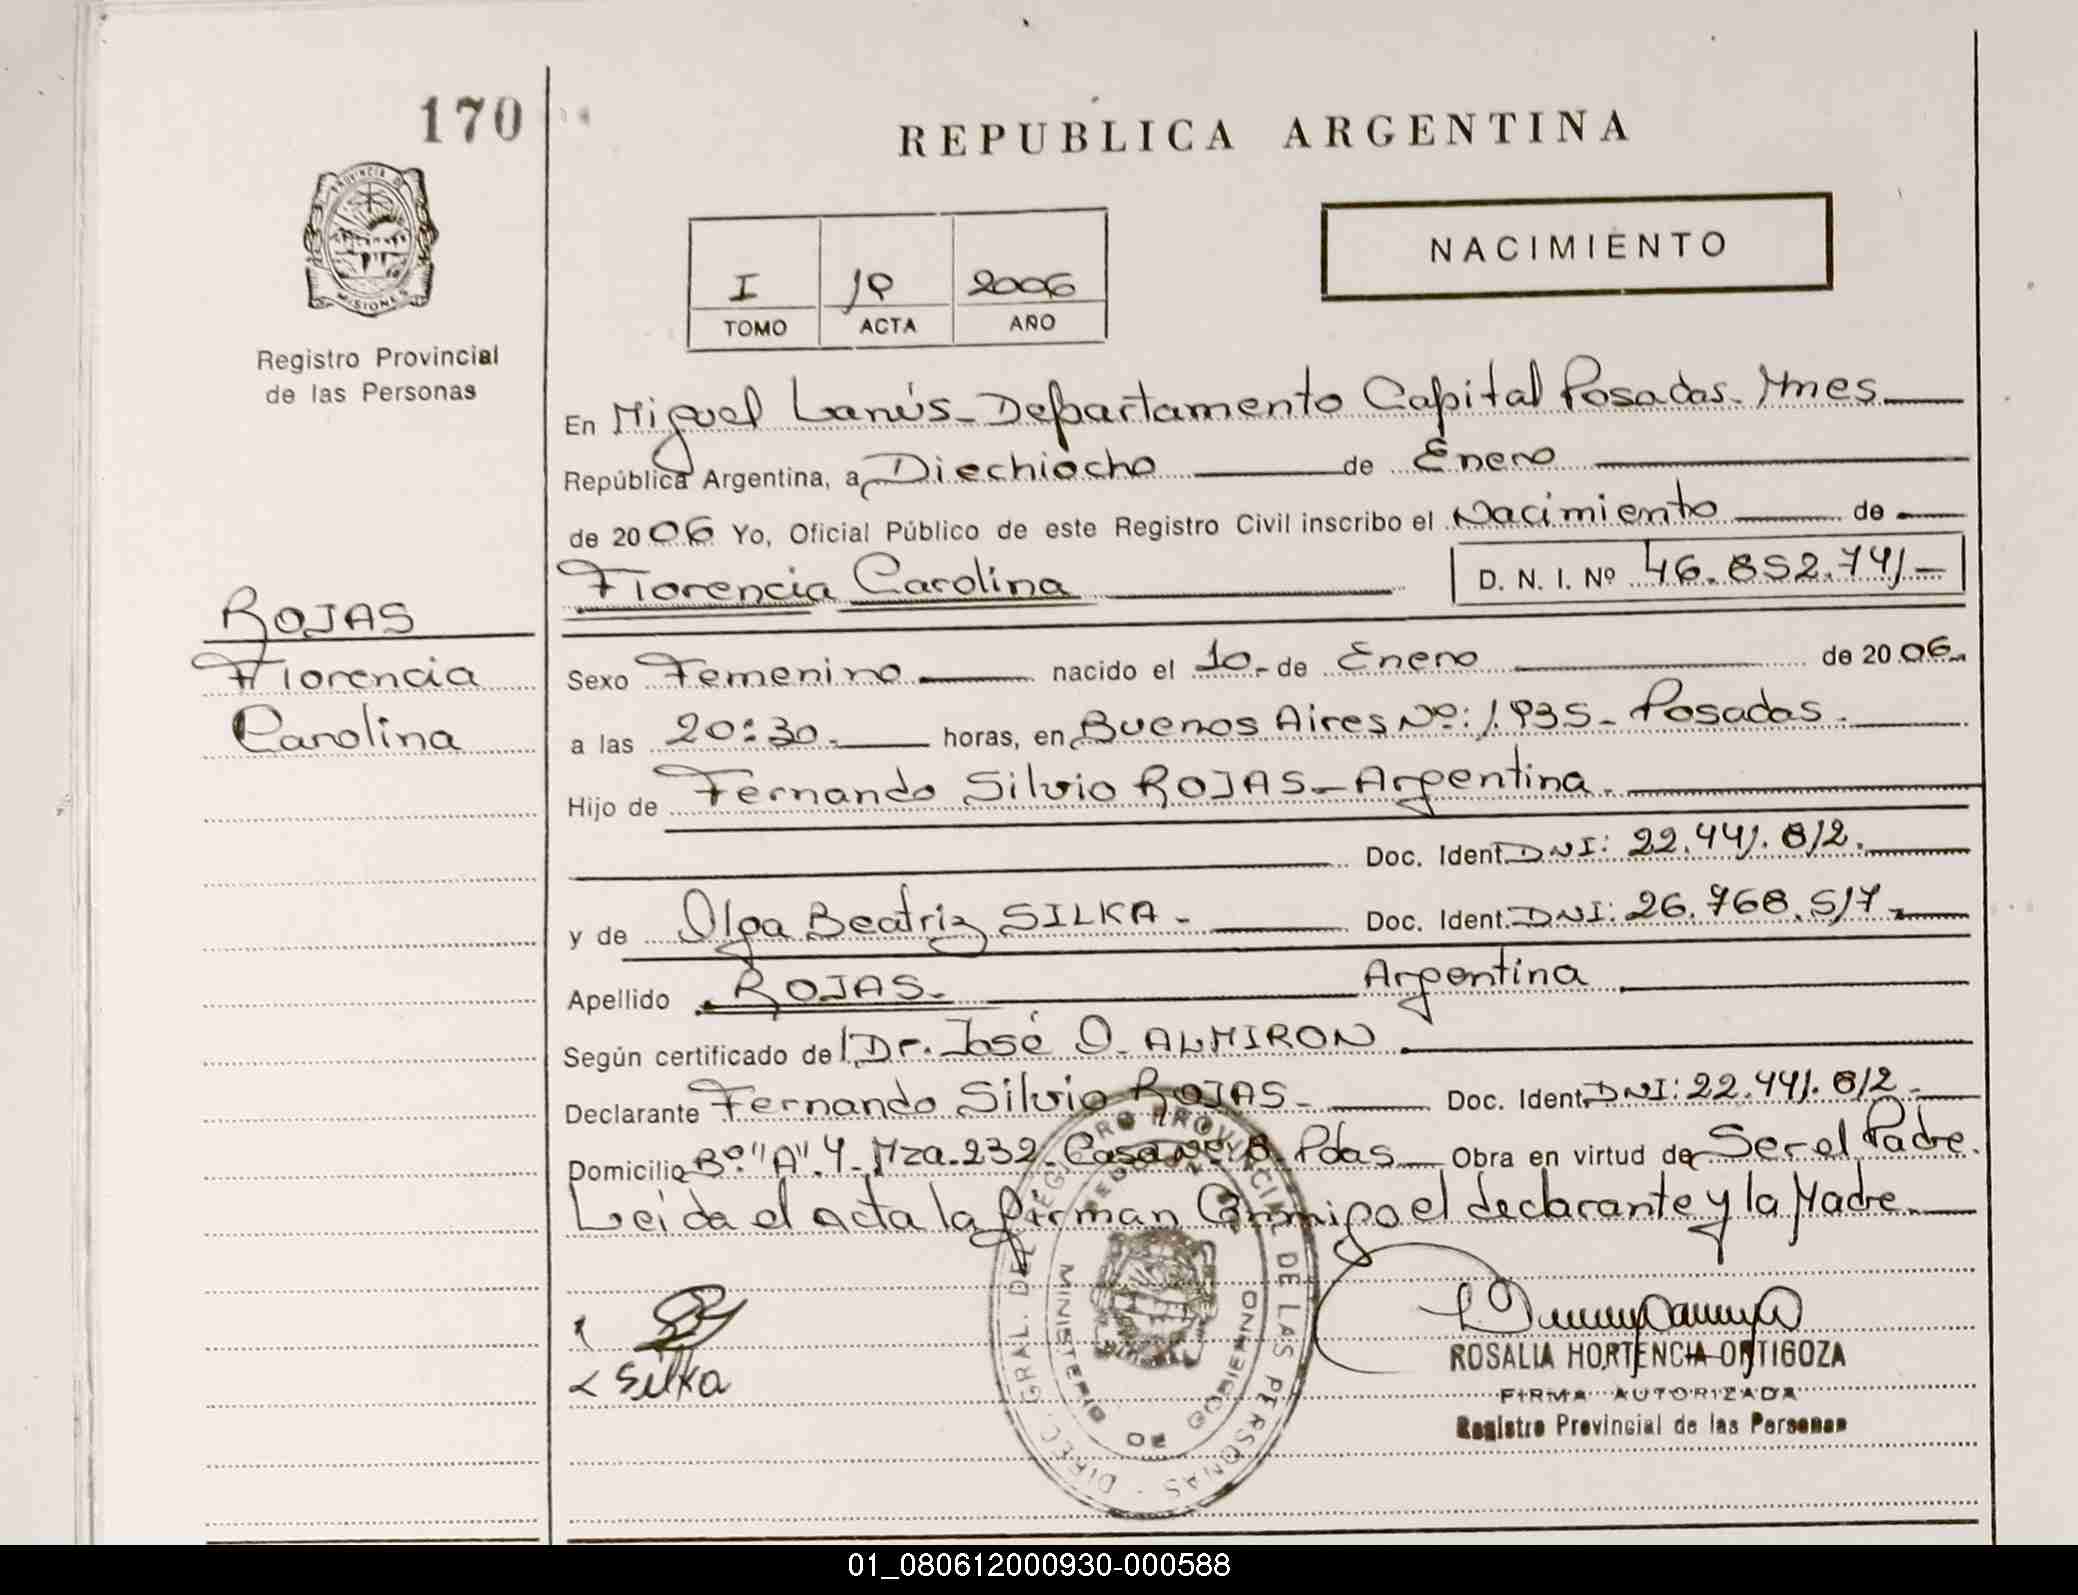 170
REPUBLICA ARGENTINA
PROVINCIA DE
MISIONES
Registro Provincial
de las Personas
NACIMIENTO
I 19 2006
TOMO ACTA AÑO
En Miguel Lanús - Departamento Capital Posadas - Mnes
República Argentina, a Diechiocho de Enero
de 2006 Yo, Oficial Público de este Registro Civil inscribo el Nacimiento de
Florencia Carolina D. N. I. Nº 46.852.741
ROJAS
Florencia
Carolina
Sexo Femenino nacido el 10 - de Enero de 2006
a las 20:30 horas, en Buenos Aires Nº: 1.935 - Posadas.
Hijo de Fernando Silvio ROJAS - Argentina
Doc. Ident. DNI: 22.441.812.
y de Olga Beatriz SILKA - Doc. Ident. DNI: 26.768.517
Apellido ROJAS - Argentina
Según certificado de Dr. José O. ALMIRON
Declarante Fernando Silvio ROJAS - Doc. Ident. DNI: 22.441.812 -
Domicilio Bº "A" 4 - Mza. 232 - Casa Nº 8 Pdas Obra en virtud de Ser el Padre.
Leida el acta la firman Conmigo el declarante y la Madre
Silka
DIREC. GRAL. DE REGISTRO PROVINCIAL DE LAS PERSONAS
MINISTERIO DE GOBIERNO
ROSALIA HORTENCIA ORTIGOZA
FIRMA AUTORIZADA
Registro Provincial de las Personas
01_080612000930-000588